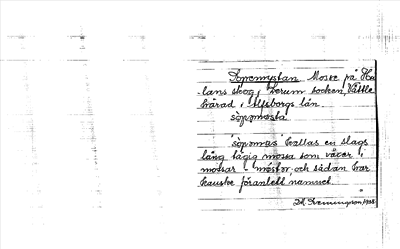 Sopremystan Mosse på Hu
lans skog, Lerum socken, Vättle
härad i Älfsborgs län.
söpomosta
"söpomas" kallas en slags
lång tågig mossa som växer i
mossar och sådan har
kanske föranlett namnet.
1928